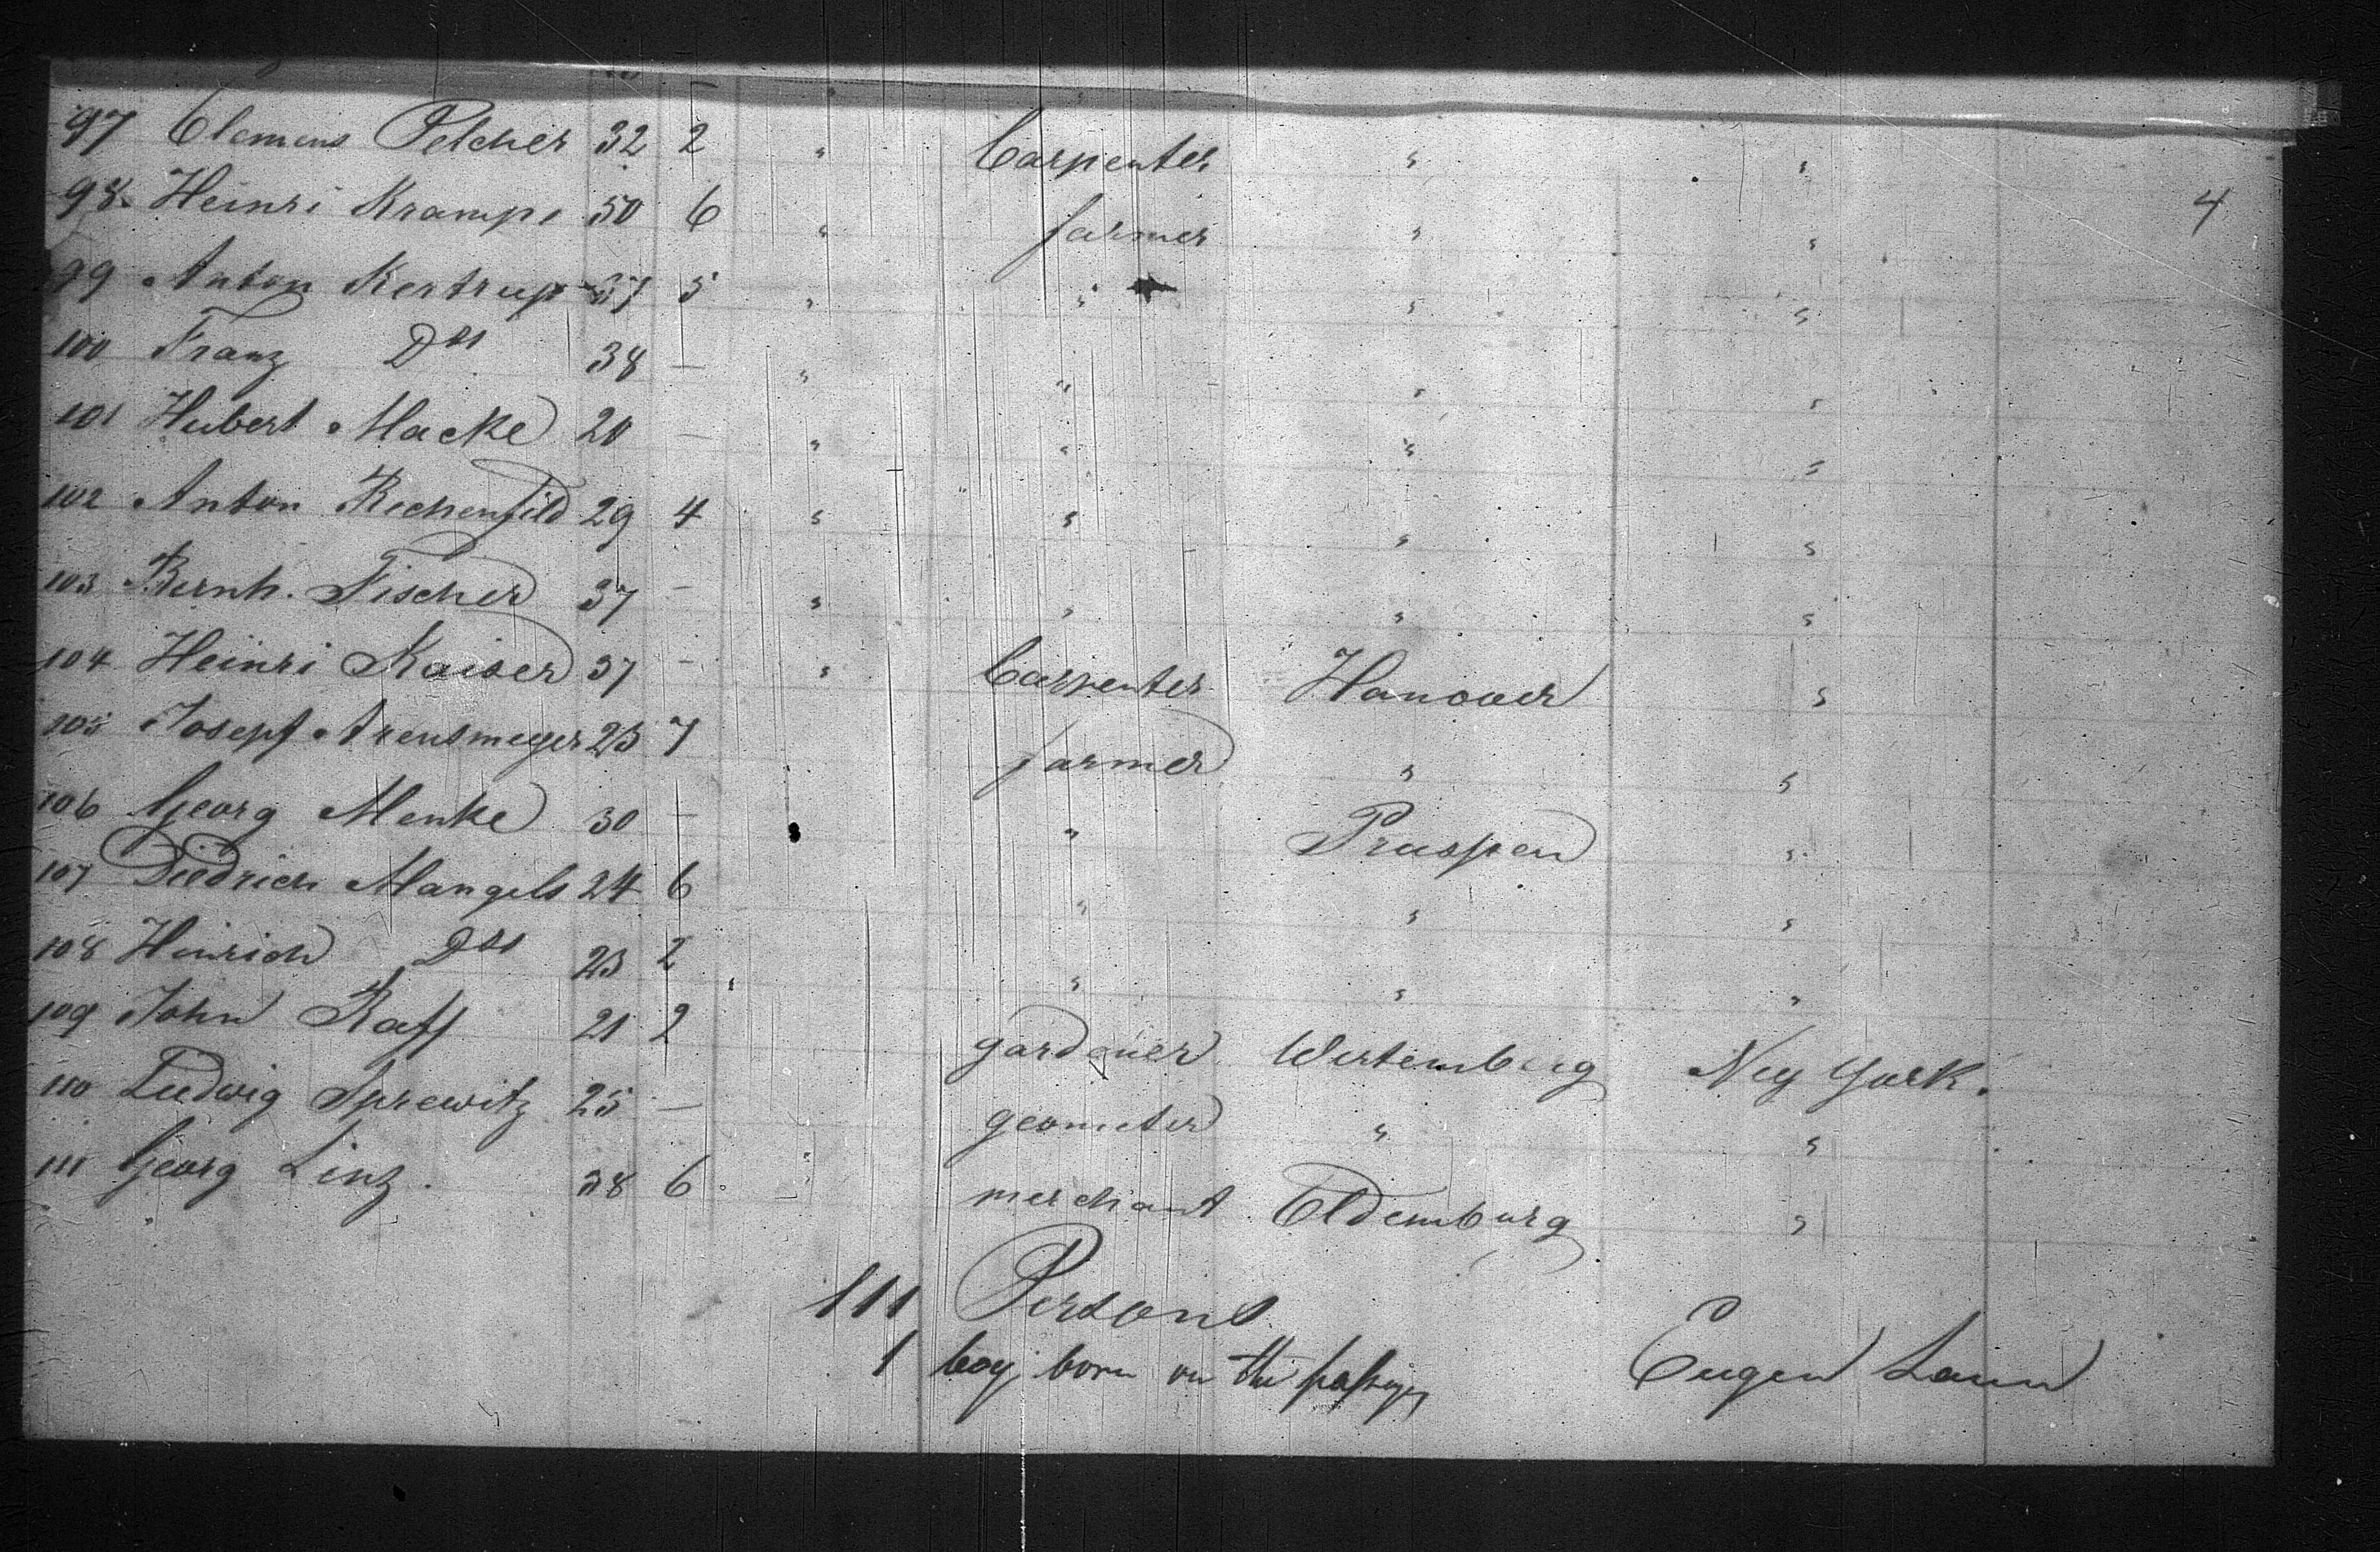 97 Clemens Pelcher 32 2 " Carpenter " "
98 Heinri Krampe 50 6 " farmer " " 4
99 Anton Kertrup 37 5 " " " "
100 Franz Dto 38 — " " " "
101 Hubert Macke 20 — " " " "
102 Anton Richenfild 29 4 " " " "
103 Bernh. Fischer 37 — " " " "
104 Heinri Kaiser 37 — " Carpenter Hanover "
105 Josepf Arensmeyer 25 7 farmer " "
106 Georg Menke 30 — " Prussen "
107 Diedrich Mangels 24 6 " " "
108 Hinrich Dto 23 2 " " "
109 John Raff 21 2 gardener Wirtemberg Ney York.
110 Ludwig Sprewitz 25 — geometer " "
111 Georg Linz. 38 6 merchant Oldemburg "
111 Persons
1 boy born on the Eugen